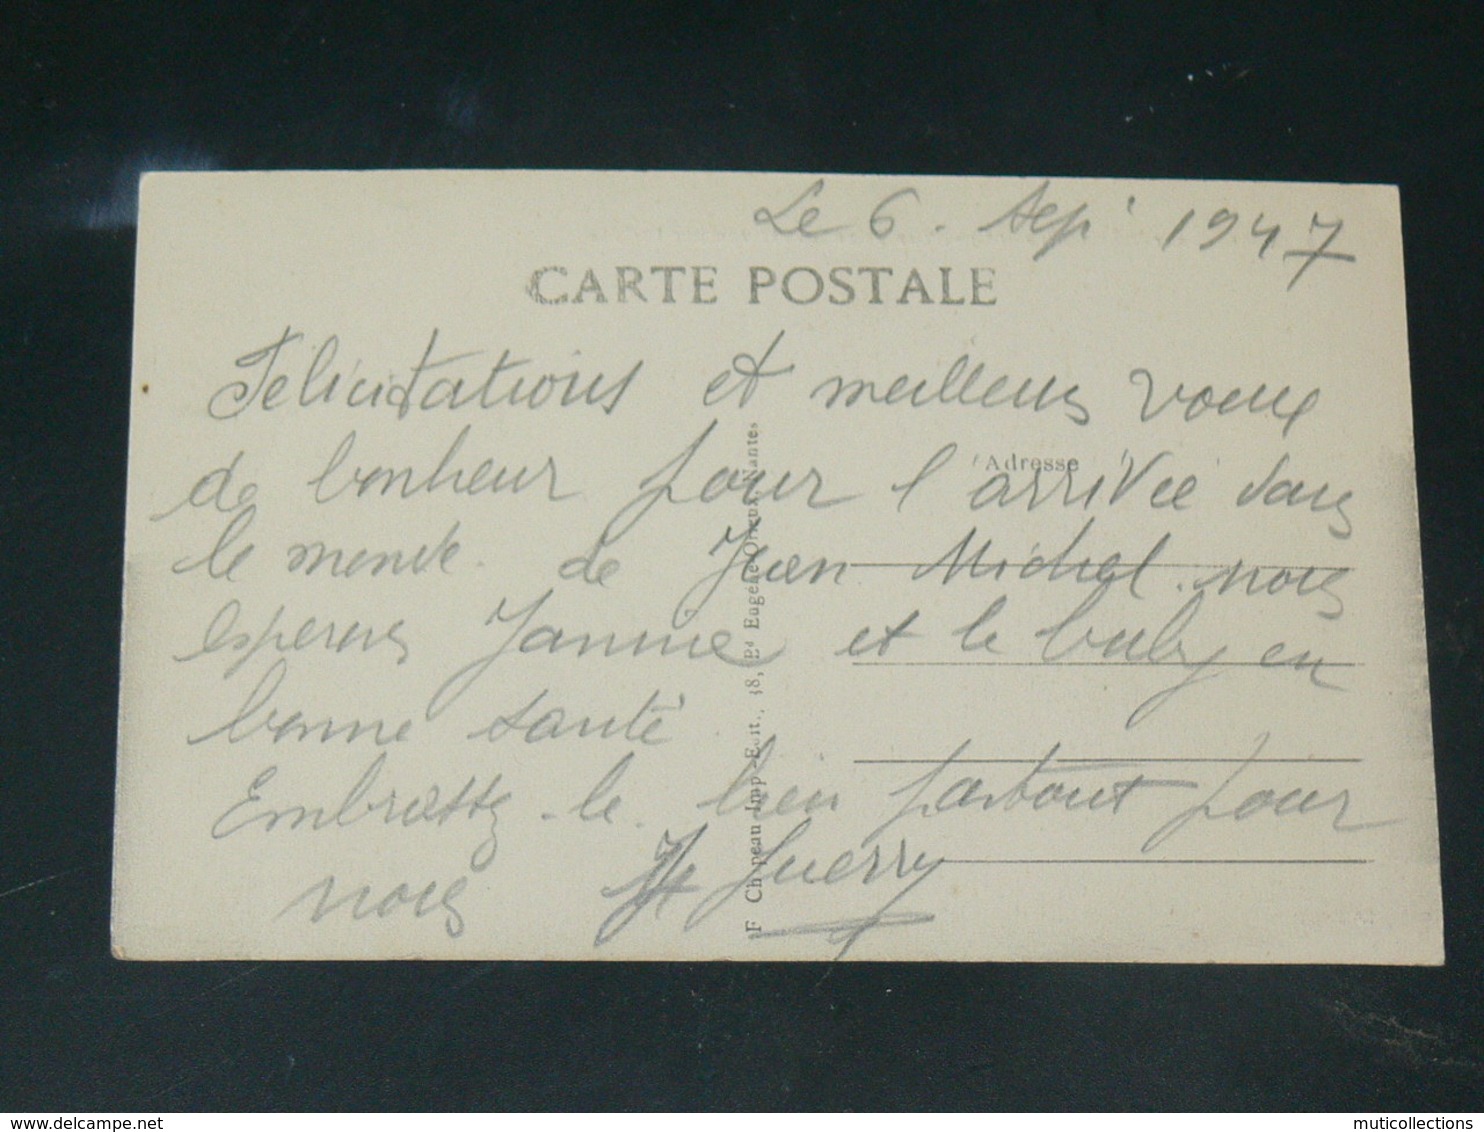 Le 6. Sep' 1947
CARTE POSTALE
Félicitations et meilleurs voeux
Adresse
de bonheur pour l'arrivée dans
le monde de Jean Michel. nous
esperons Jannie et le baby en
bonne santé
Embrassez-le bien partout pour
nous Guerry
F Chapeau Imp.-Edit., 38, Bd Eugène Orieux, Nantes
www.delcampe.net
muticollections